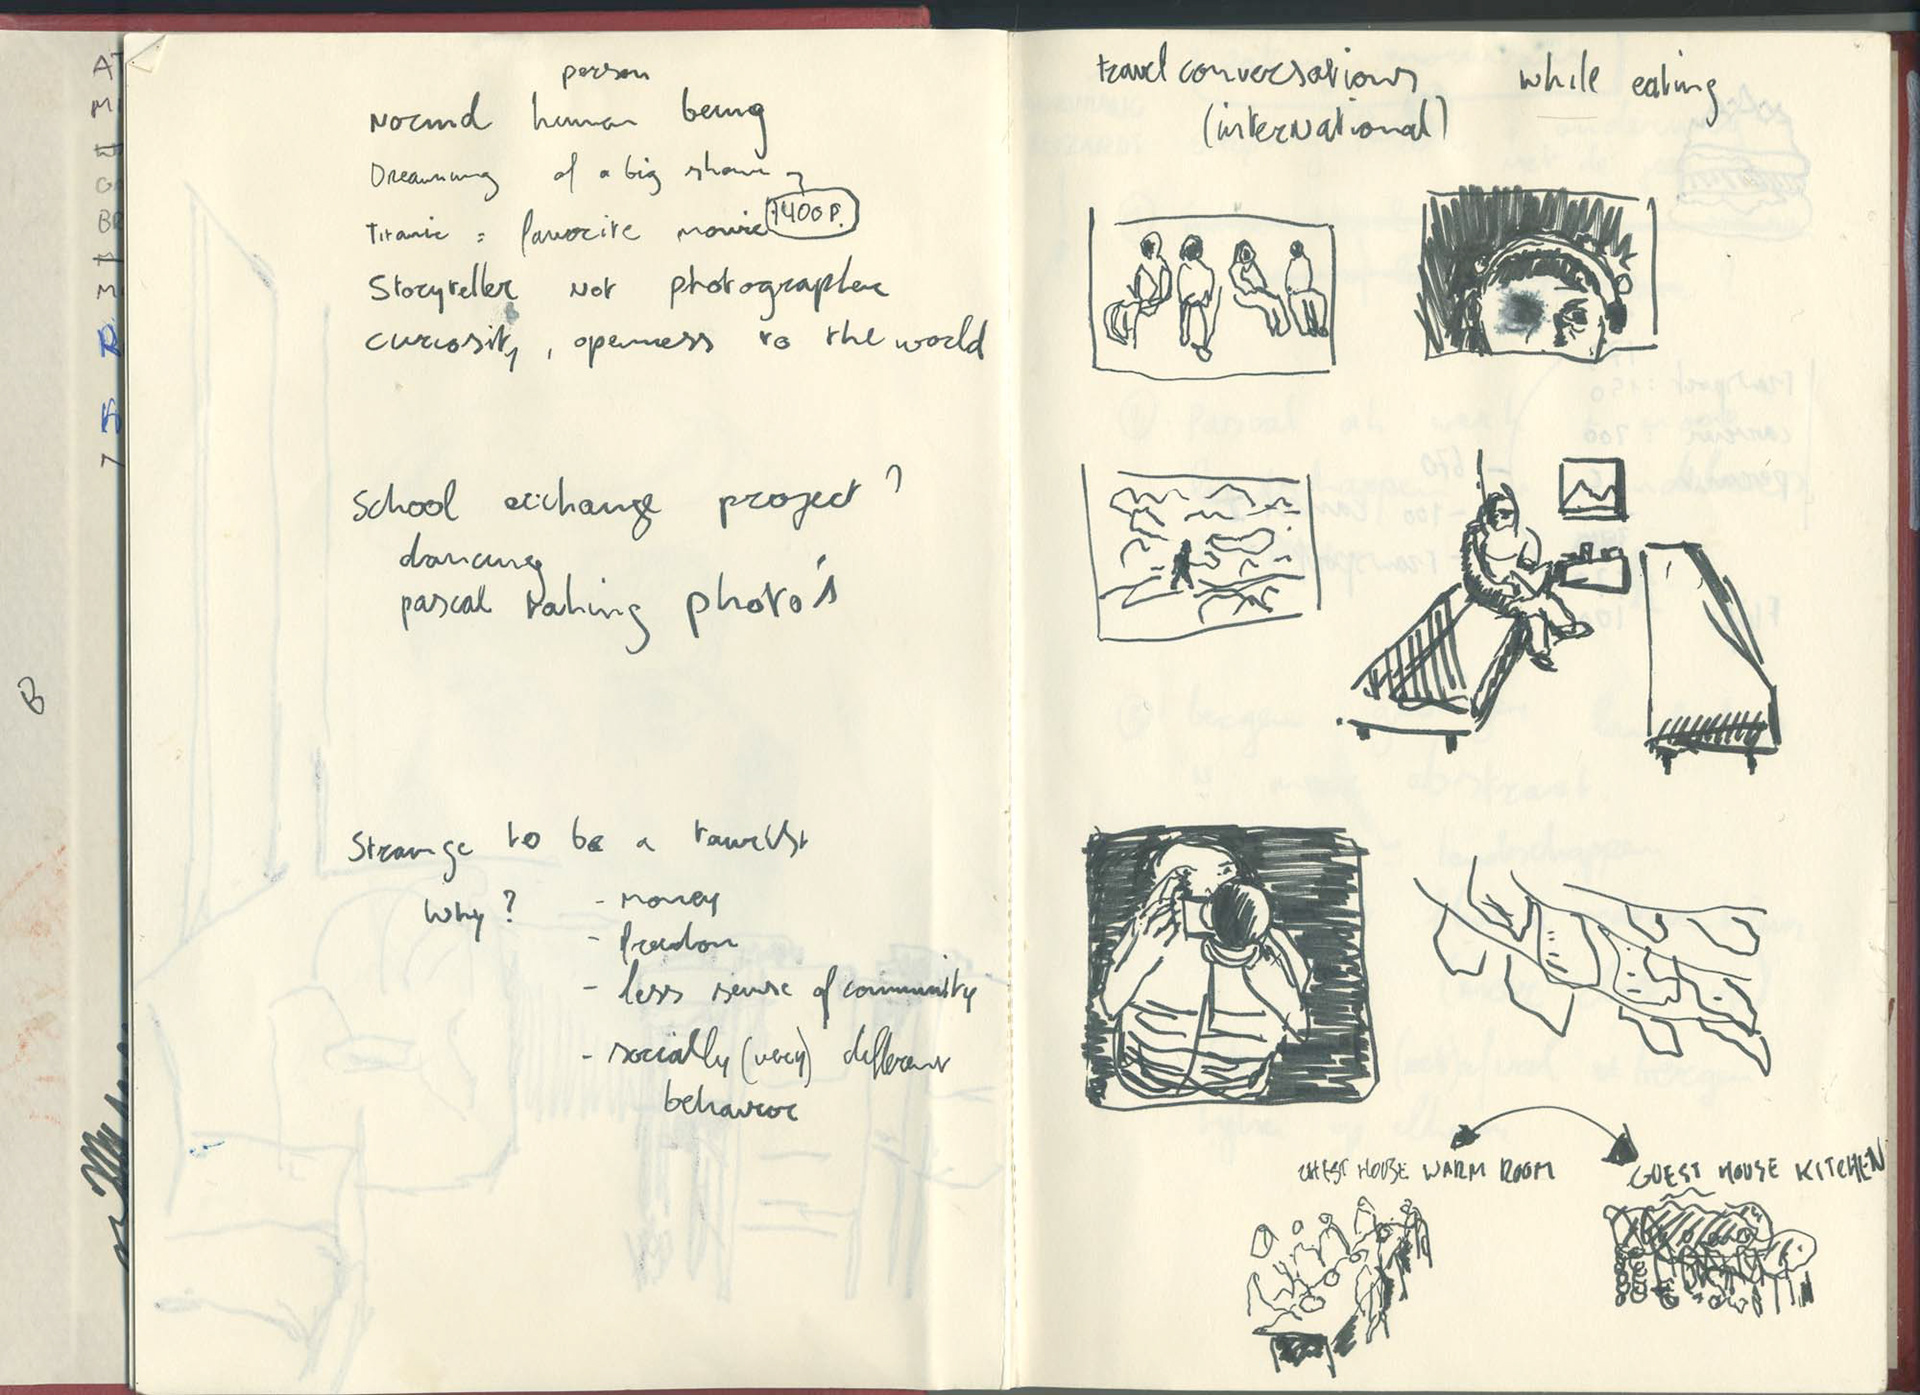 person
Normal human being
Dreaming of a big show
Titanic = favorite movie 1400 P.
Storyteller not photographer
curiosity, openness to the world
School exchange project?
dancing
pascal taking photo's
Strange to be a tourist
Why? - money
- freedom
- less sense of community
- socially (very) different
behavior
B
travel conversations while eating
(international)
GUEST HOUSE WARM ROOM
GUEST HOUSE KITCHEN